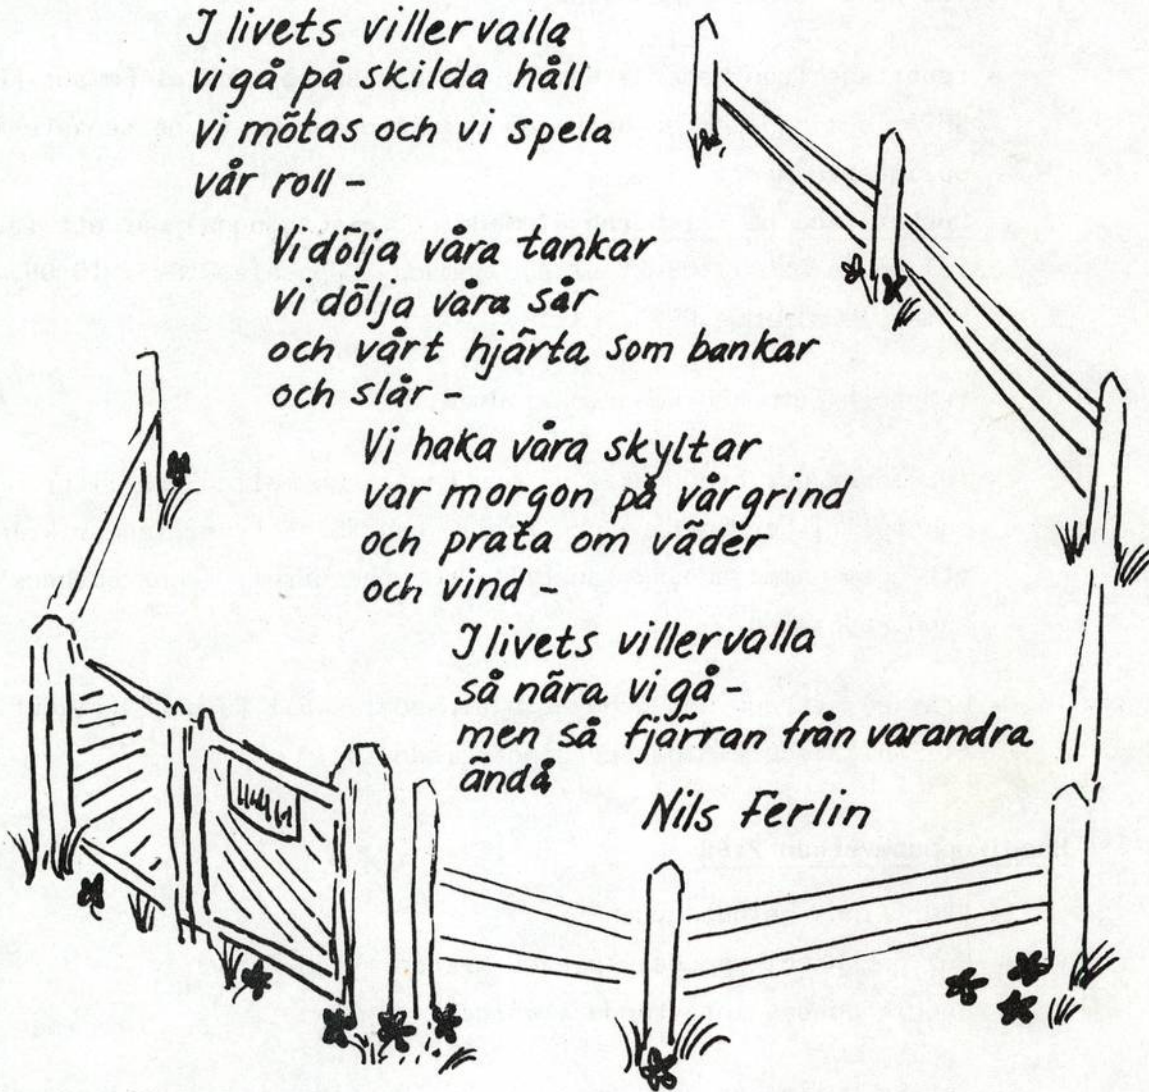 I livets villervalla
vi gå på skilda håll
vi mötas och vi spela
vår roll -
Vi dölja våra tankar
vi dölja våra sår
och vårt hjärta som bankar
och slår -
Vi haka våra skyltar
var morgon på vår grind
och prata om väder
och vind -
I livets villervalla
så nära vi gå -
men så fjärran från varandra
ändå
Nils Ferlin